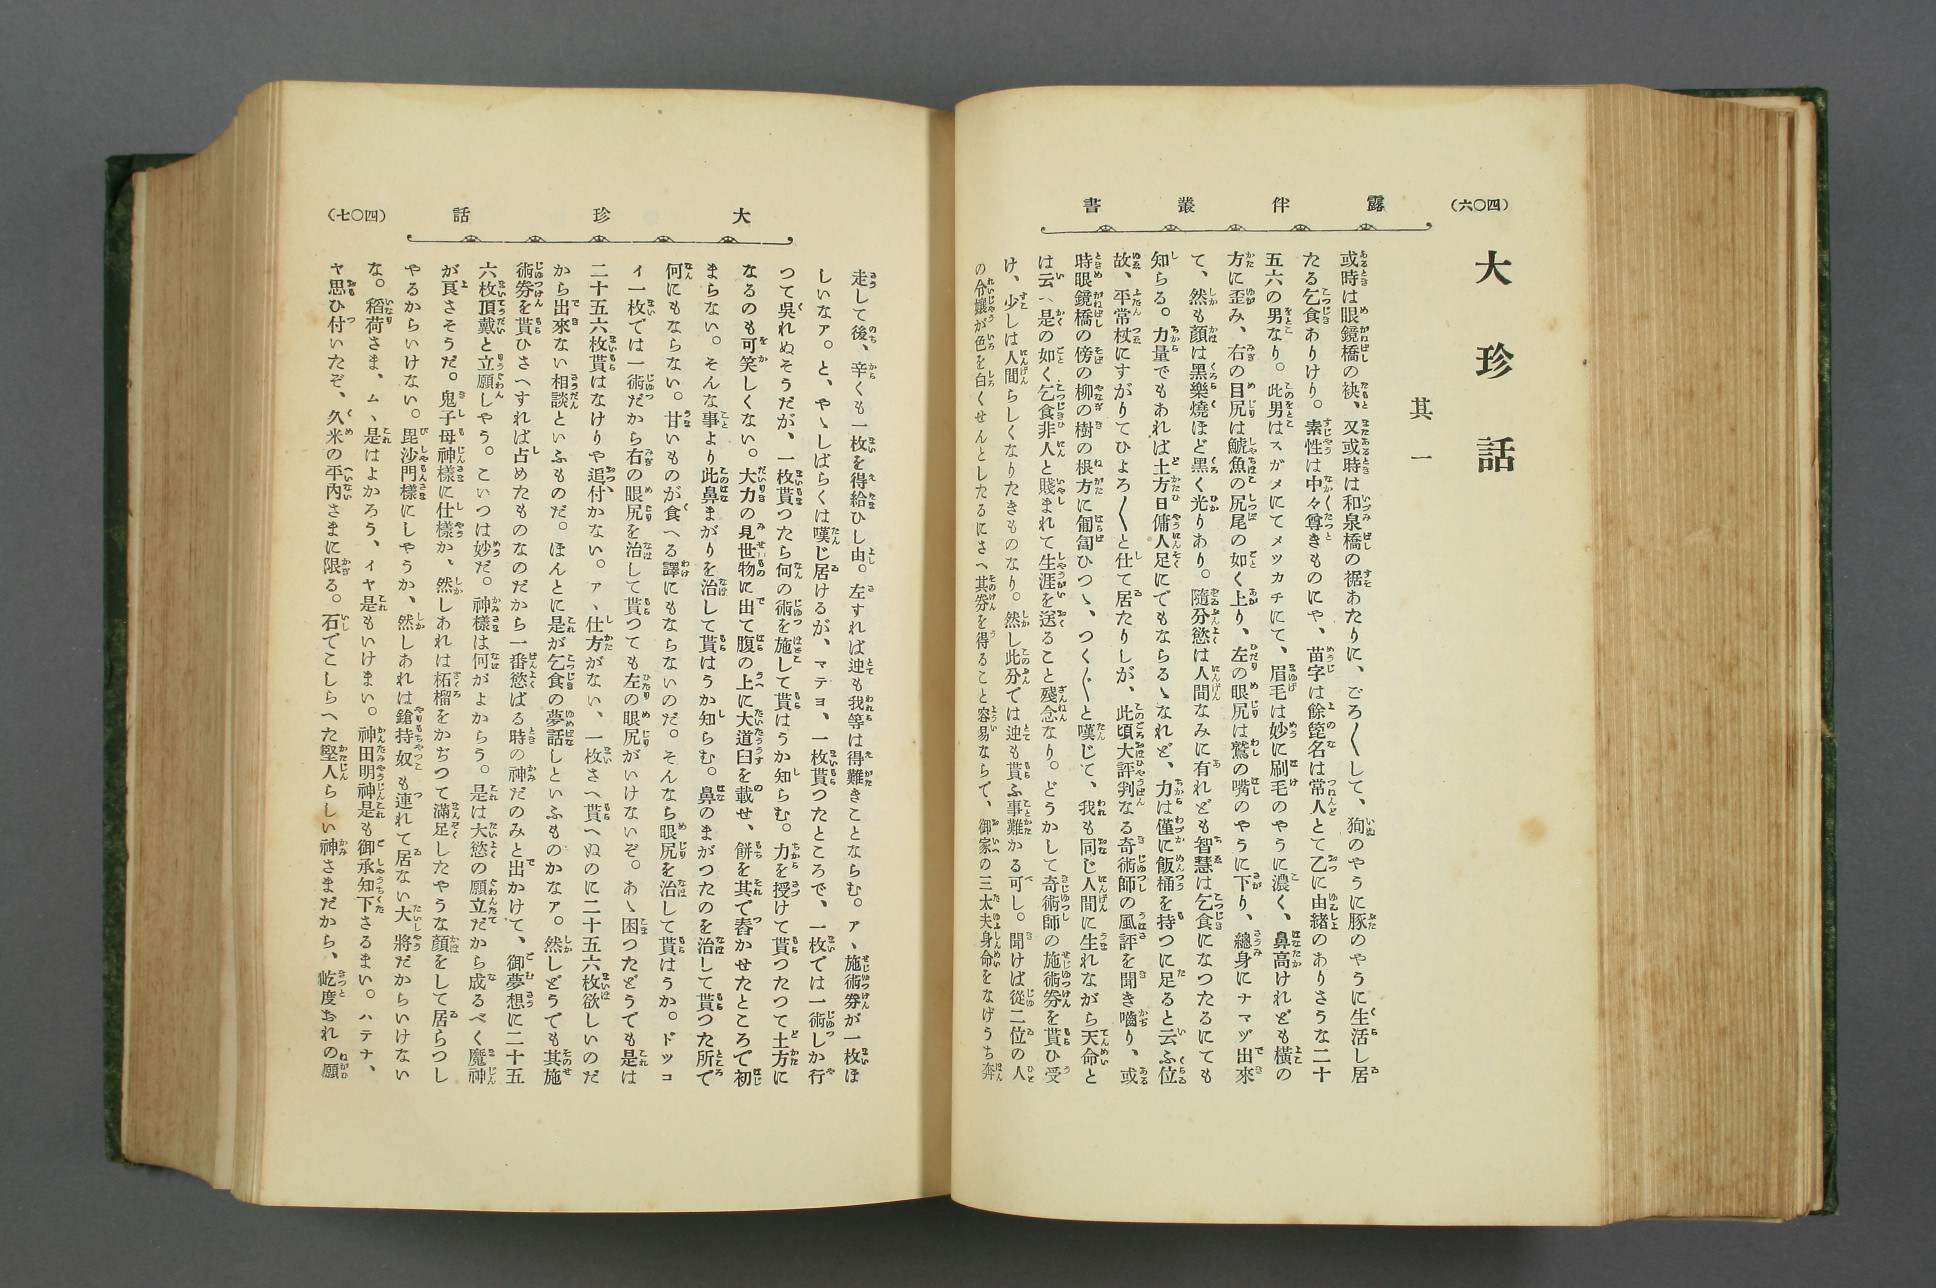 (四〇六)
露伴叢書
大珍話
其一
或時は眼鏡橋の袂、又或時は和泉橋の裾あたりに、ごろ〱して、狗のやうに豚のやうに生活し居
たる乞食ありけり。素性は中々尊きものにや、苗字は餘箆名は常人とて乙に由緒のありさうな二十
五六の男なり。此男はスガメにてメッカチにて、眉毛は妙に刷毛のやうに濃く、鼻高けれども橫の
方に歪み、右の目尻は鯱魚の尻尾の如く上り、左の眼尻は鷲の嘴のやうに下り、總身にナマヅ出來
て、然も顏は黑樂燒ほど黑く光りあり。隨分慾は人間なみに有れども智慧は乞食になつたるにても
知らる。力量でもあれば土方日傭人足にでもならるゝなれど、力は僅に飯桶を持つに足ると云ふ位
故、平常杖にすがりてひよろ〱と仕て居たりしが、此頃大評判なる奇術師の風評を聞き嚙り、或
時眼鏡橋の傍の柳の樹の根方に匍匐ひつゝ、つく〲と嘆じて、我も同じ人間に生れながら天命と
は云へ是の如く乞食非人と賤まれて生涯を送ること殘念なり。どうかして奇術師の施術券を貰ひ受
け、少しは人間らしくなりたきものなり。然し此分では迚も貰ふ事難かる可し。聞けば從二位の人
の令孃が色を白くせんとしたるにさへ其券を得ること容易ならで、御家の三太夫身命をなげうち奔
大珍話
(四〇七)
走して後、辛くも一枚を得給ひし由。左すれば迚も我等は得難きことならむ。ア、施術券が一枚ほ
しいなア。と、やゝしばらくは嘆じ居けるが、マテヨ、一枚貰つたところで、一枚では一術しか行
つて吳れぬそうだが、一枚貰つたら何の術を施して貰はうか知らむ。力を授けて貰つたつて土方に
なるのも可笑しくない。大力の見世物に出て腹の上に大道臼を載せ、餅を其で舂かせたところで初
まらない。そんな事より此鼻まがりを治して貰はうか知らむ。鼻のまがつたのを治して貰つた所で
何にもならない。甘いものが食へる譯にもならないのだ。そんなら眼尻を治して貰はうか。ドッコ
イ一枚では一術だから右の眼尻を治して貰つても左の眼尻がいけないぞ。あゝ困つたどうでも是は
二十五六枚貰はなけりや追付かない。ア、仕方がない、一枚さへ貰へぬのに二十五六枚欲しいのだ
から出來ない相談といふものだ。ほんとに是が乞食の夢話しといふものかなア。然しどうでも其施
術劵を貰ひさへすれば占めたものなのだから一番慾ばる時の神だのみと出かけて、御夢想に二十五
六枚頂戴と立願しやう。こいつは妙だ。神樣は何がよからう。是は大慾の願立だから成るべく魔神
が可さそうだ。鬼子母神樣に仕樣か、然しあれは柘榴をかぢつて滿足したやうな顏をして居らつし
やるからいけない。毘沙門樣にしやうか、然しあれは鎗持奴も連れて居ない大將だからいけない
な。稻荷さま、ム、是はよかろう、イヤ是もいけまい。神田明神是も御承知下さるまい。ハテナ、
ヤ思ひ付いたぞ、久米の平內さまに限る。石でこしらへた堅人らしい神さまだから、屹度おれの願